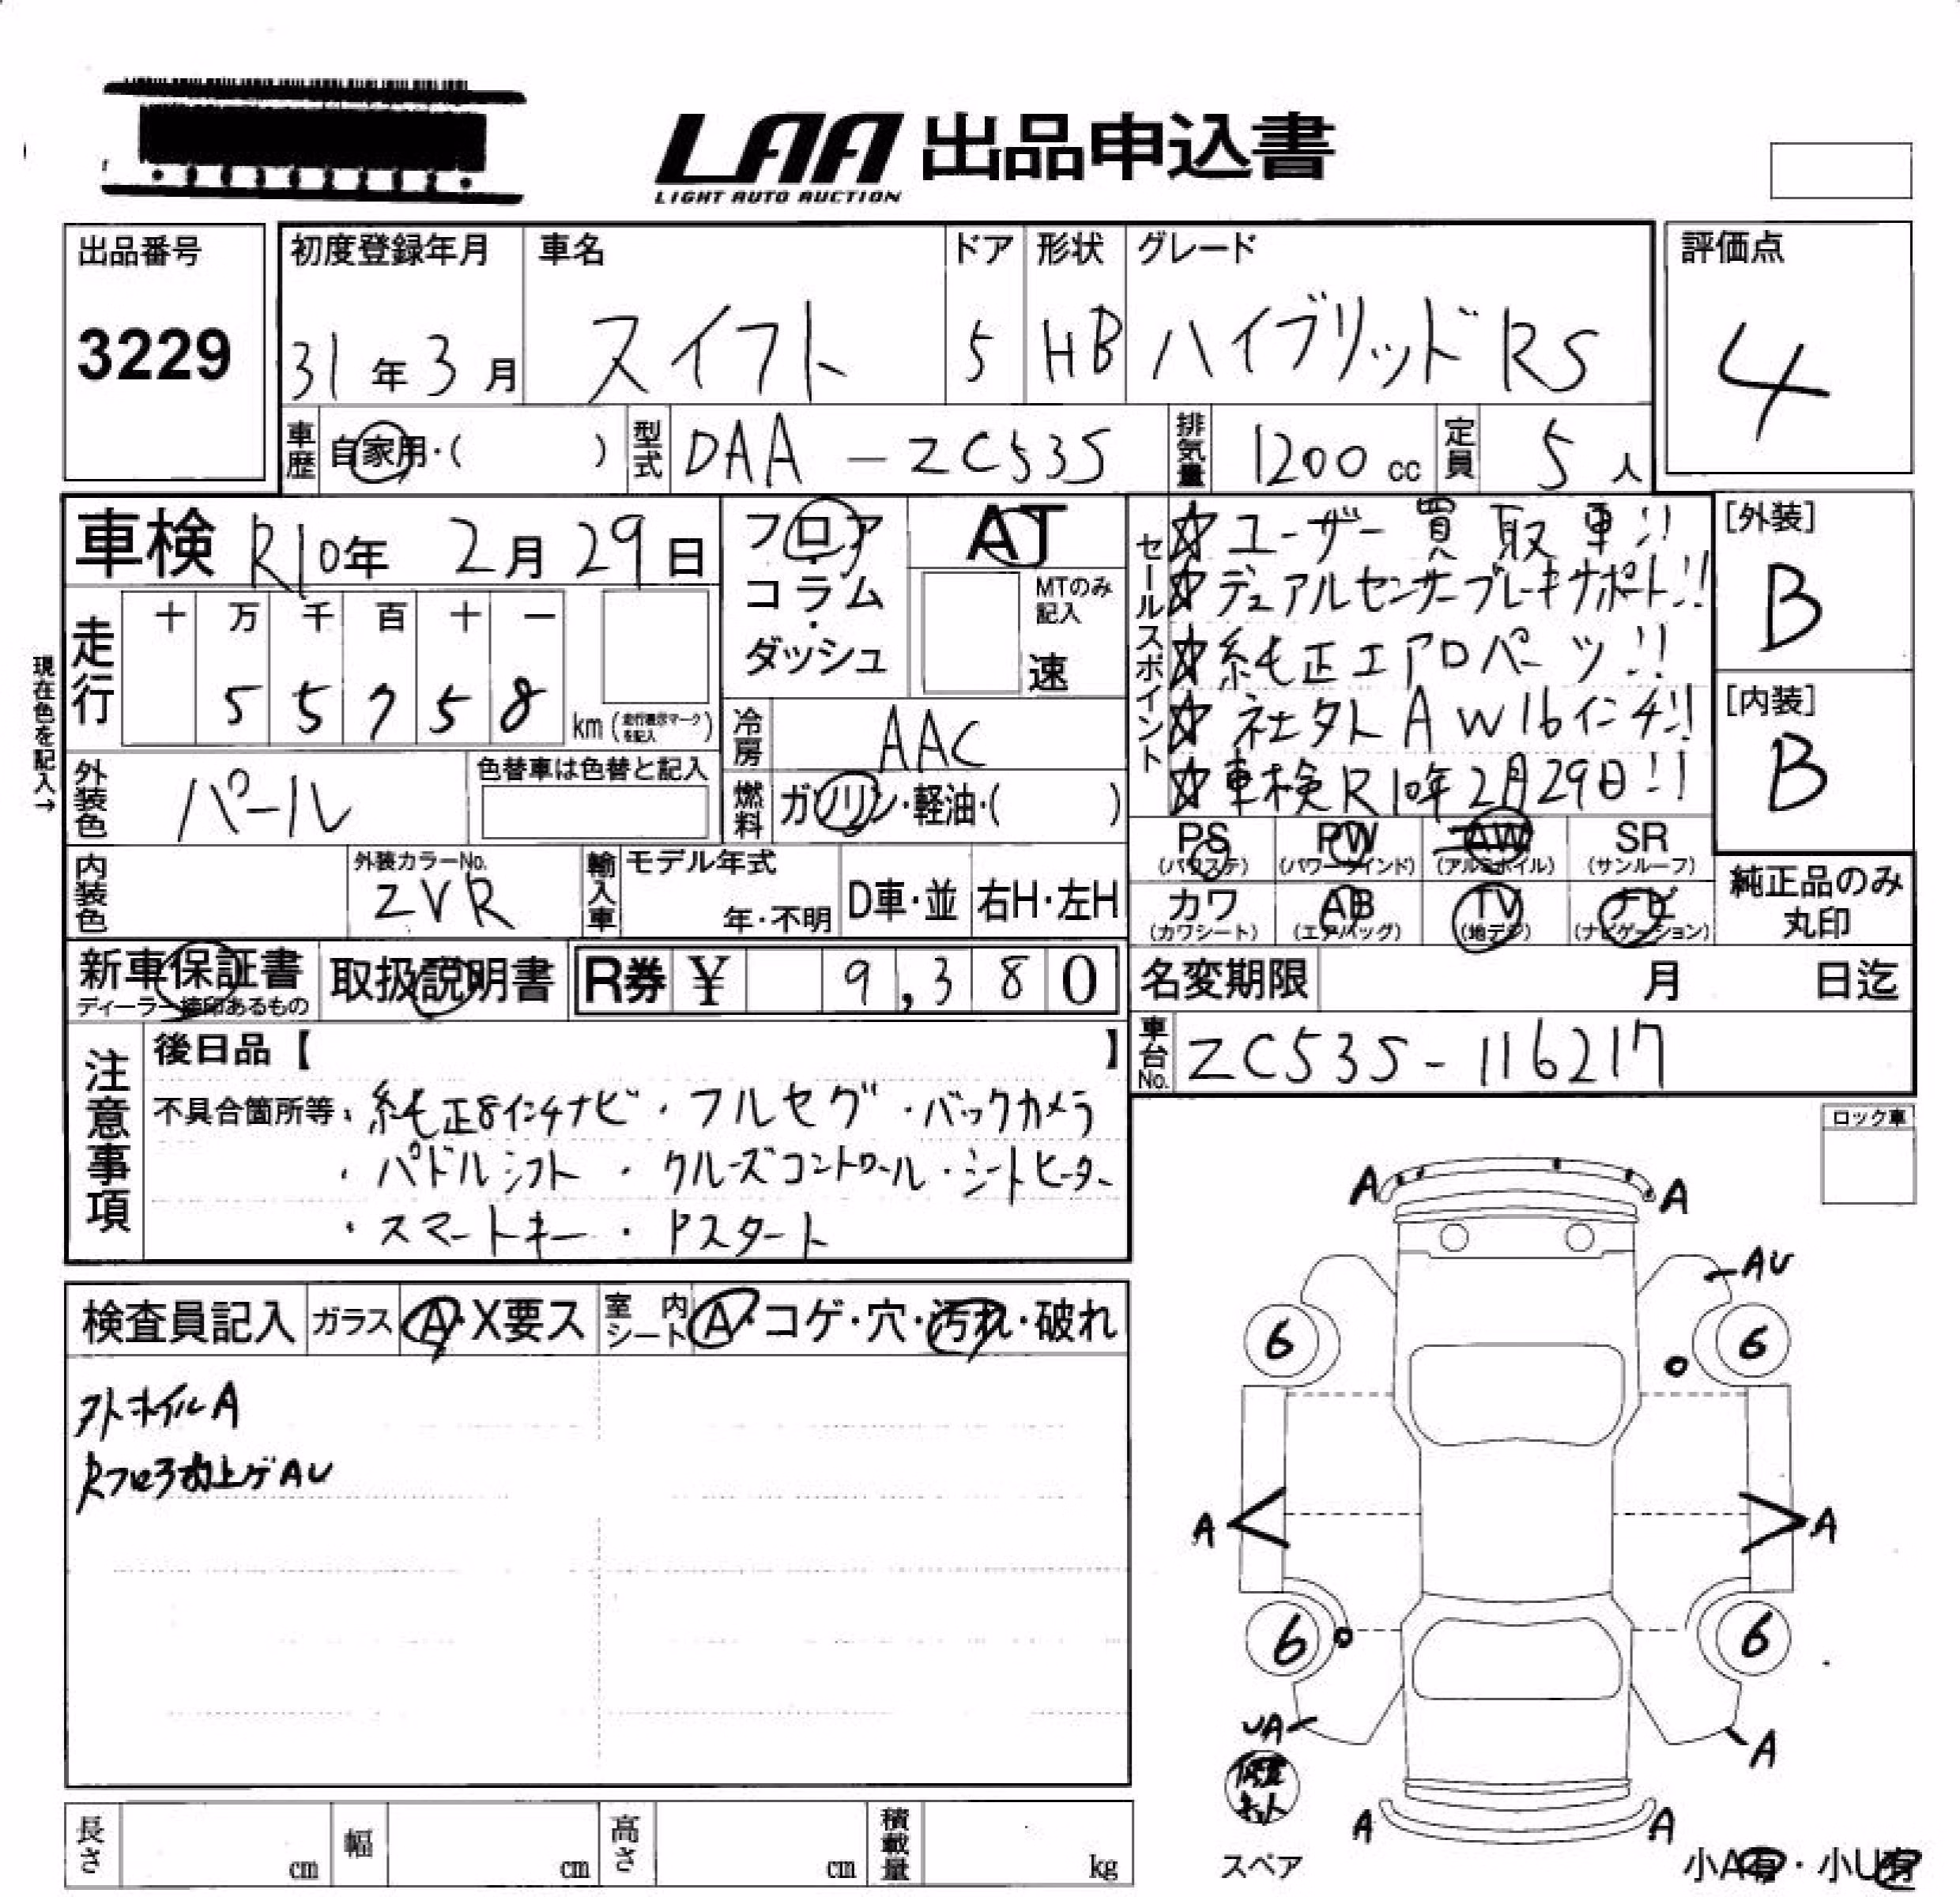 LAA 出品申込書
LIGHT AUTO AUCTION
出品番号
3229
初度登録年月
31年3月
車名
スイフト
ドア
5
形状
HB
グレード
ハイブリッドRS
評価点
4
車歴
自家用・( )
型式
DAA-ZC53S
排気量
1200cc
定員
5人
車検 R10年 2月29日
フロア・コラム・ダッシュ
AT
MTのみ記入
速
現在色を記入→
走行
十 万 千 百 十 一
5 5 7 5 8
km(走行表示マークを記入)
冷房
AAC
外装色
パール
色替車は色替と記入
燃料
ガソリン・軽油・( )
内装色
外装カラーNo.
ZVR
輸入車
モデル年式
年・不明
D車・並
右H・左H
セールスポイント
☆ユーザー買取車!!
☆デュアルセンサーブレーキサポート!!
☆純正エアロパーツ!!
☆社外AW16インチ!!
☆車検R10年2月29日!!
[外装]
B
[内装]
B
PS (パワステ)
PW (パワーウインド)
AW (アルミホイル)
SR (サンルーフ)
カワ (カワシート)
AB (エアバッグ)
TV (地デジ)
ナビ (ナビゲーション)
純正品のみ丸印
新車保証書
ディーラー捺印あるもの
取扱説明書
R券 ¥ 9,380
名変期限 月 日迄
車台No.
ZC53S-116217
注意事項
後日品【 】
不具合箇所等・純正8インチナビ・フルセグ・バックカメラ
・パドルシフト・クルーズコントロール・シートヒーター
・スマートキー・Pスタート
ロック車
検査員記入
ガラス
A・X要ス
室内シート
A・コゲ・穴・汚れ・破れ
外ホイルA
AU
A A
AU
6 6
A A
6 6
UA
A
A A
スペア
小A有・小U有
長さ cm
幅 cm
高さ cm
積載量 kg